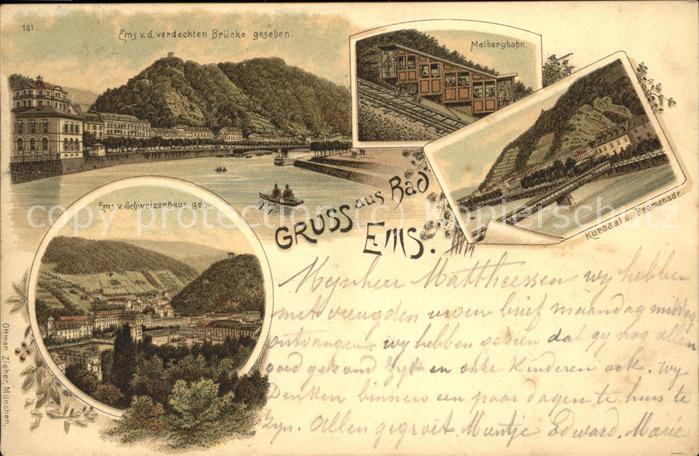 181.
Ems v. d. verdeckten Brücke gesehen.
Malbergbahn.
Kursaal u. Promenade.
Ems v. Schweizerhaus ges.
GRUSS aus Bad
EMS.
Mynheer Mattheessen wy hebben
met vreugden uwen brief maandag middag
ontvangen. wy hebben gezien dat gy nog allen
goed gezond zyt en onke Kinderen ook. wy
Denken binnen een paar dagen te huis te
zyn. Allen gegroet. Edward. Marie
Ottmar Zieher, München.
Copyright protection Copyright Künstler